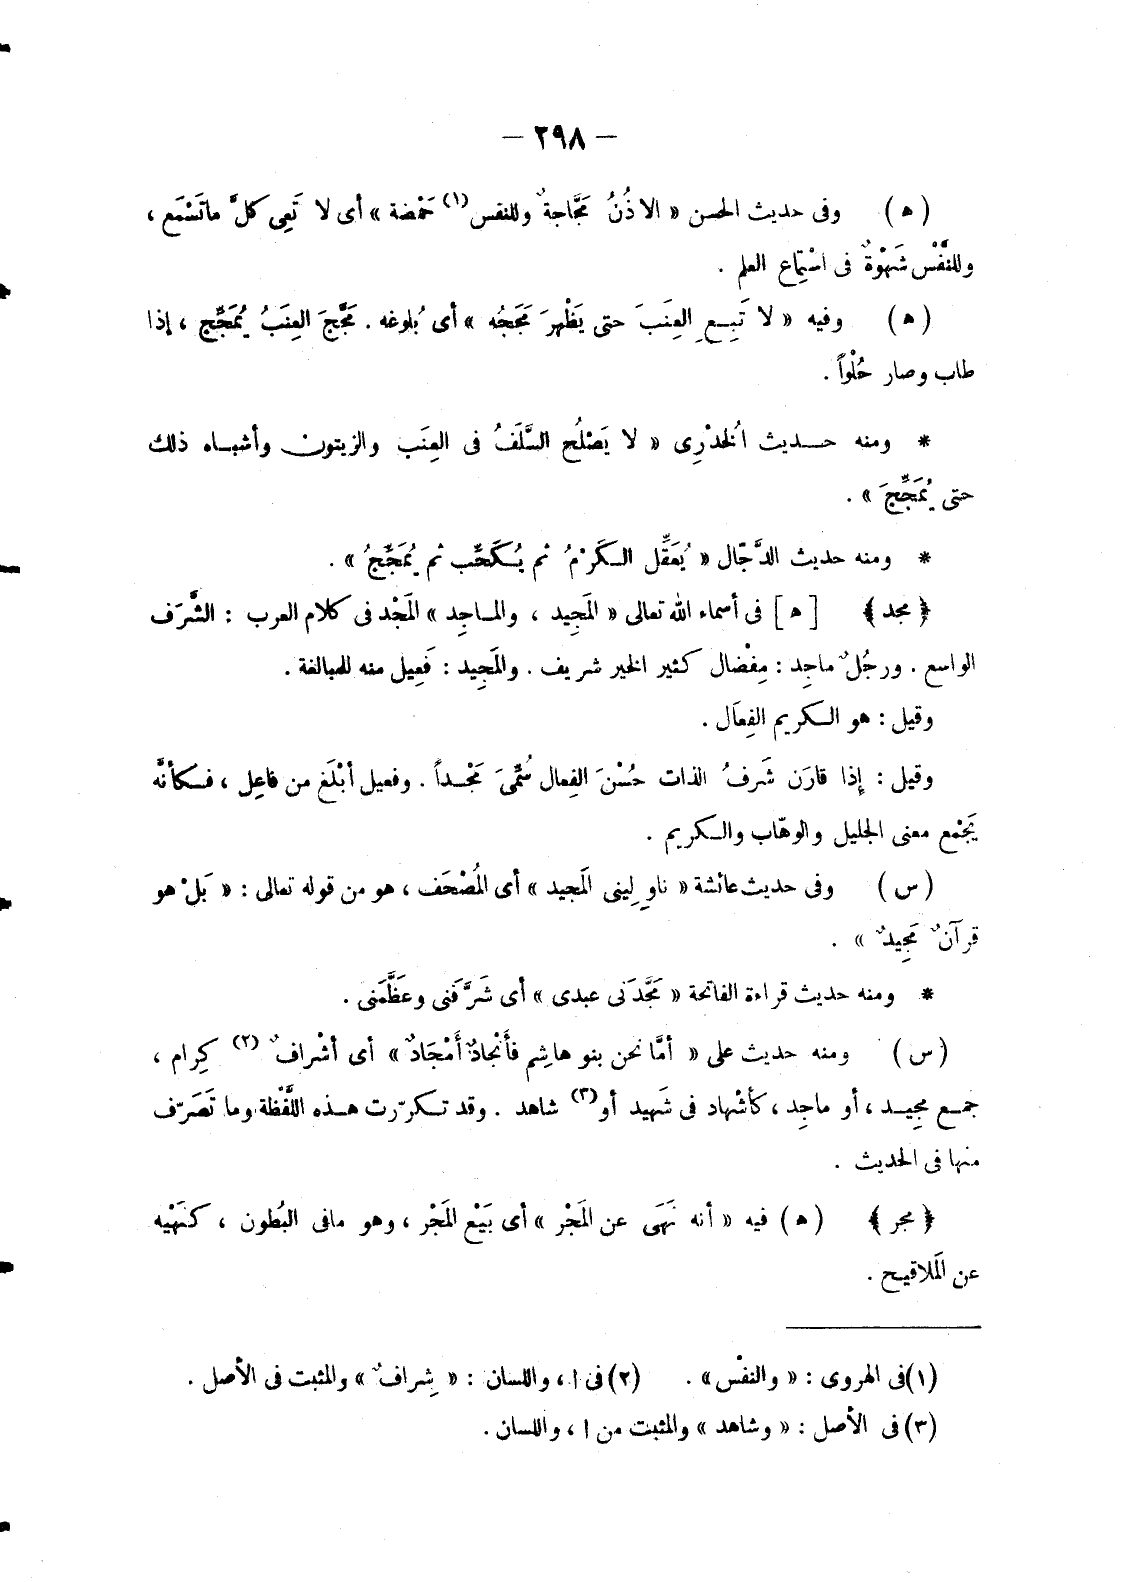 — ٢٩٨ —
( ه ) وفى حديث الحسن « الاذُنُ مَجَّاجةٌ وللنفس(١) حَمْضة » أى لا تَعِى كلَّ ماتَسْمَع ،
وللنَّفْس شَهْوَةٌ فى اسْتِماع العلم .
( ه ) وفيه « لا تَبِعِ العِنَبَ حتى يَظْهرَ مَجَجُه » أى بُلوغه . مَجَّجَ العِنَبُ يُمَجِّج ، إذا
طاب وصار حُلْواً .
* ومنه حديث الُخدْرِى « لا يَصْلُح السَّلَفُ فى العِنَب والزيتون وأشباه ذلك
حتى يُمَجِّجَ » .
* ومنه حديث الدَّجّال « يُعَقِّل الكَرْمُ ثم يُكَحِّب ثم يُمَجِّجُ » .
﴿ مجد ﴾ [ ه ] فى أسماء الله تعالى « المَجِيد ، والماجِد » المَجْد فى كلام العرب : الشَّرَف
الواسع . ورجُلٌ ماجِد : مِفْضال كثير الخير شريف . والمَجِيد : فَعِيل منه للمبالغة .
وقيل : هو الكريم الفِعَال .
وقيل : إذا قارَن شَرفُ الذات حُسْنَ الفِعال سُمِّىَ مَجْداً . وفعيل أبْلَغ من فاعِل ، فكأنَّه
يَجْمع معنى الجليل والوهّاب والكريم .
( س ) وفى حديث عائشة « ناوِلِينى المَجيد » أى المُصْحَف ، هو من قوله تعالى : « بَلْ هو
قرآنٌ مَجِيدٌ » .
* ومنه حديث قراءة الفاتحة « مَجَّدَنى عبدى » أى شَرَّفَنى وعَظَّمَنى .
( س ) ومنه حديث على « أمَّا نحن بنو هاشِم فأَنْجادٌ أَمْجَادٌ » أى أشْرافٌ (٢) كِرام ،
جمع مجِيد ، أو ماجِد ، كأشْهاد فى شَهيد أو(٣) شاهد . وقد تكرّرت هذه اللَّفْظة وما تَصَرّف
منها فى الحديث .
﴿ مجر ﴾ ( ه ) فيه « أنه نَهَى عن المَجْر » أى بَيْع المَجْر ، وهو مافى البُطون ، كنَهْيِه
عن المَلاقيح .
(١) فى الهروى : « والنفْس » . (٢) فى ا ، واللسان : « شِرافٌ » والمثبت فى الأصل .
(٣) فى الأصل : « وشاهد » والمثبت من ا ، واللسان .